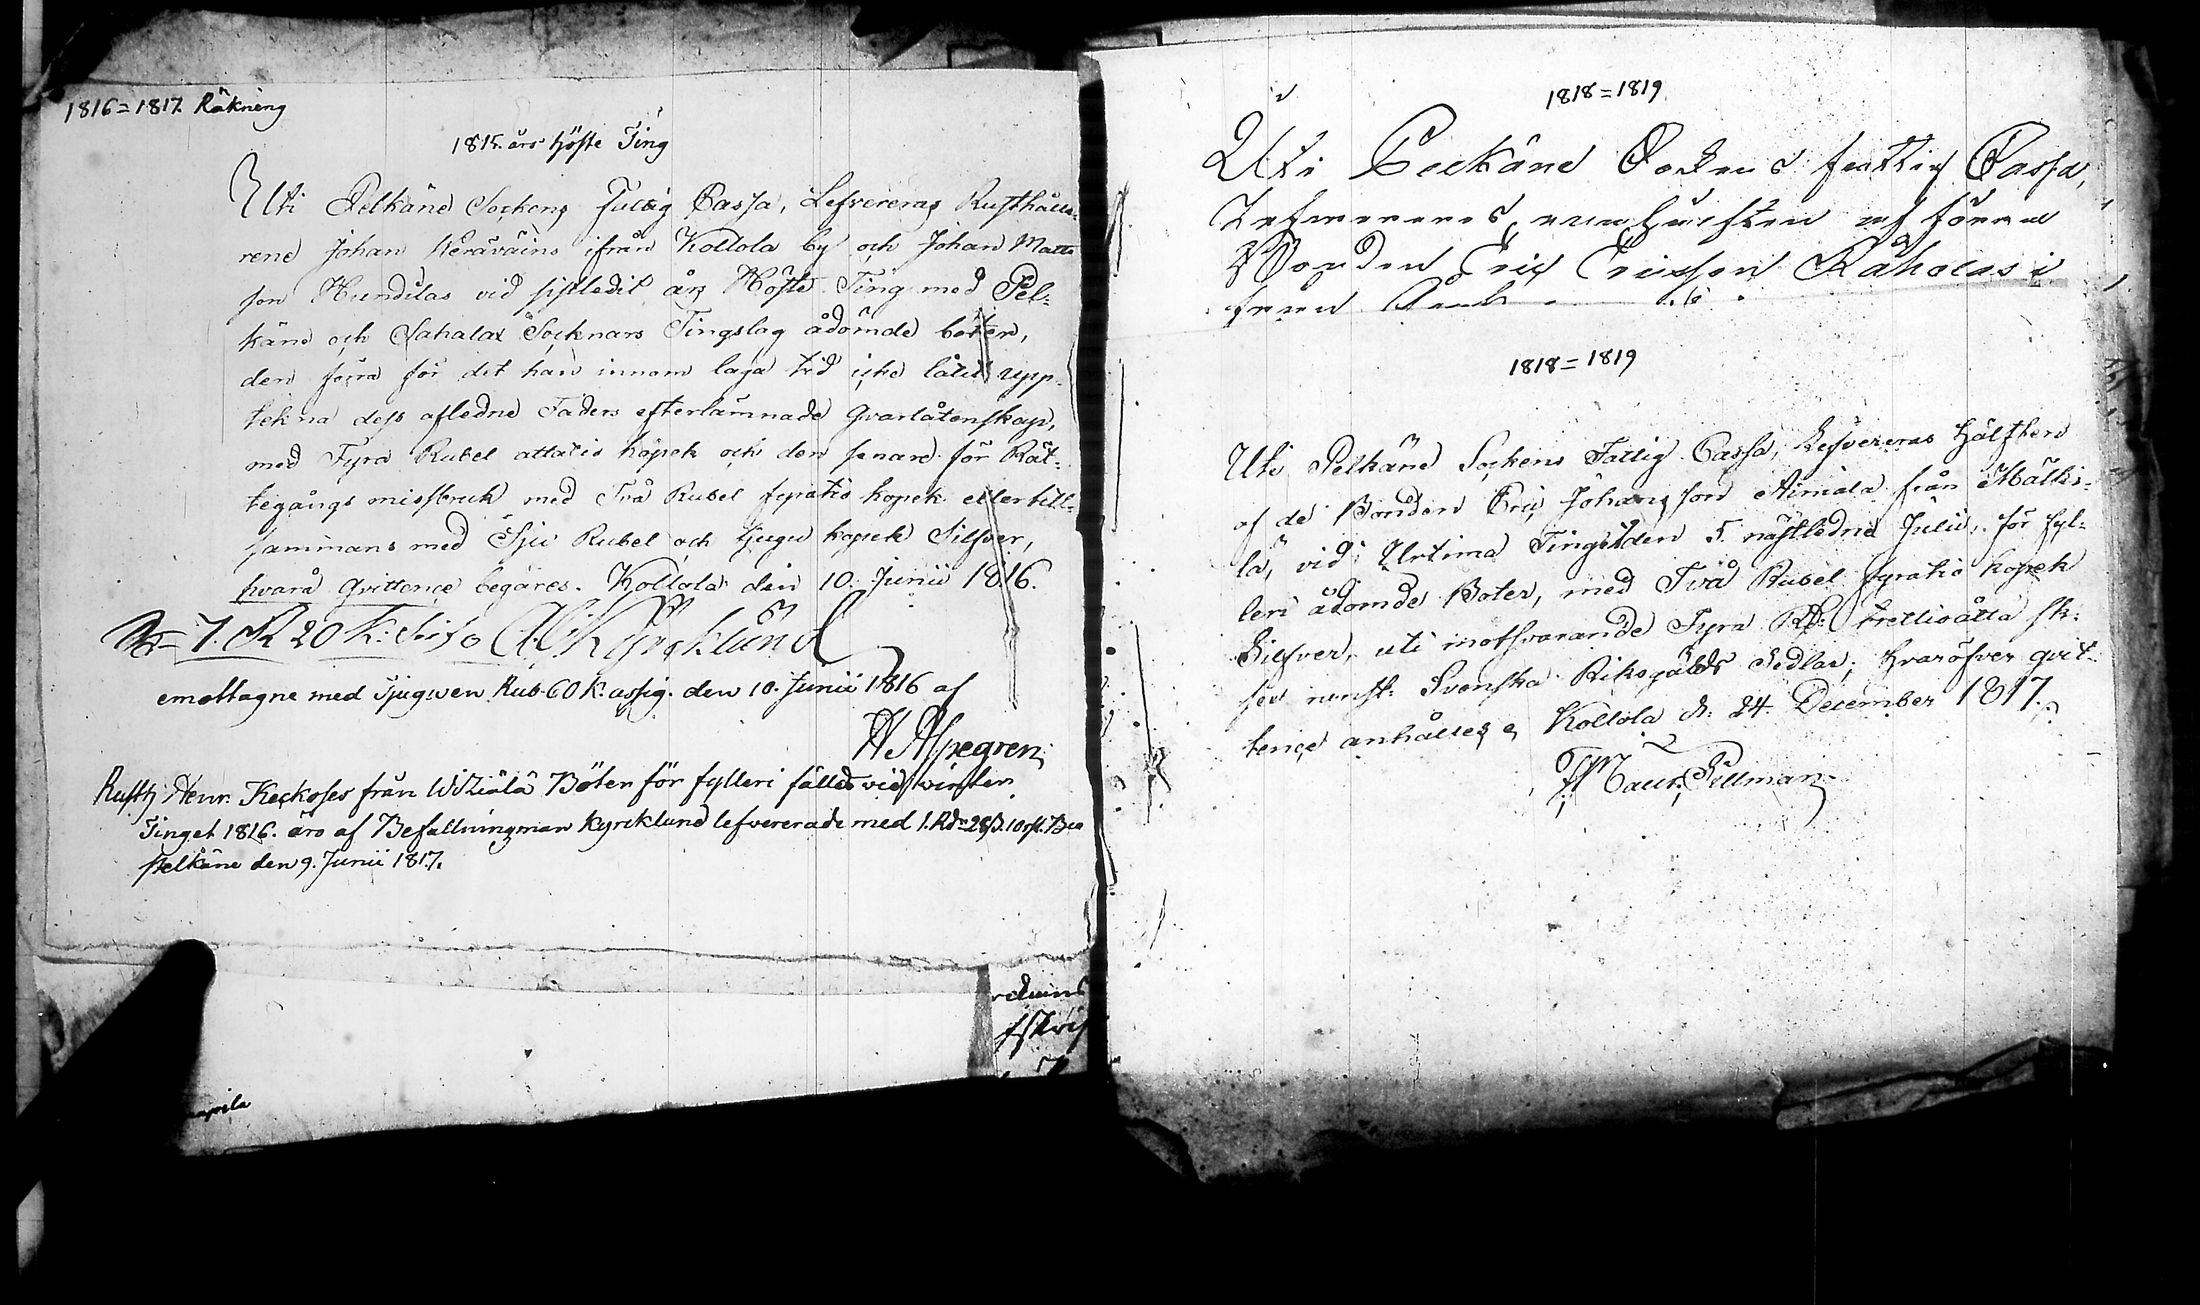 1816=1817. Räkning
1815. års höste Ting
Uti Pelkäne Sockens Fattig Cassa, Lefvereras Rusthålla-
rene Johan Keräväins ifrån Kollola by och Johan Matts
son Hundilas vid sistledit års Höste Ting med Pel-
käne och Sahalax Socknars Tingslag ådömde böter,
den förra för det han innom laga tid icke låtit upp-
tekna dess afledne Faders efterlämnade qvarlåtenskap,
med Fyra Rubel attatio kopek och den senare för Rät-
tegångs missbruk med Två Rubel fyratio kopek eller till-
sammans med Sju Rubel och tjugu kopek Silfver,
hvarå qvittence begäres. Kollola den 10. Junii 1816.
7. R 20 K: Silf: Kyrcklund
emottagne med Tjugwen Rub. 60 K. assig. den 10. Junii 1816 af
Alpegren
Rusth: Henr. Keckoses från Wiliälä Böter för fylleri fälld vid winter
Tinget 1816. äro af Befallningman Kyrcklund lefvererade med 1. Rdr 28 ß. 10 rst. Bco
Pelkäne den 9. Junii 1817.
1818=1819
Uti Pelkäne Sockens fattig Cassa,
Lefvereres af förra
Bonden Eric Ericsson Råholas i
från
1818=1819
Uti Pelkäne Sockens Fattig Cassa, Lefvereras hälften
af de Bonden Eric Johansson Aimala från Mälki-
lä, vid Urtima Tinget den 5. nästledne Julii, för fyl-
leri ådömde Böter, med Två Rubel fyratio kopek
Silfver, uti motsvarande Fyra Rd: trettioåtta sk:
sex runst: Svenska Riksgälds Sedlar; hvaröfver qvit-
tence anhålles, Kollola d: 24. December 1817.
Tillman